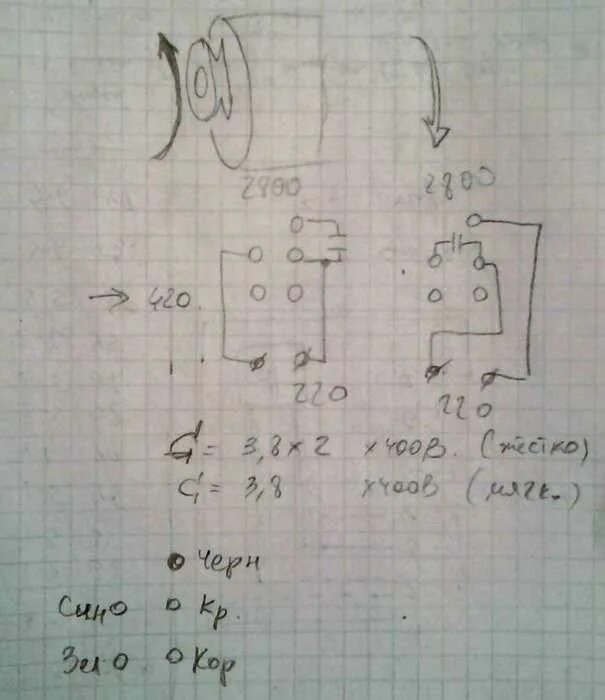 2800
2800
→ 420.
220
220
C = 3,8 × 2 × 400В. (жёстко)
C = 3,8 × 400В (мягк.)
Черн
Син Кр.
Зел Кор